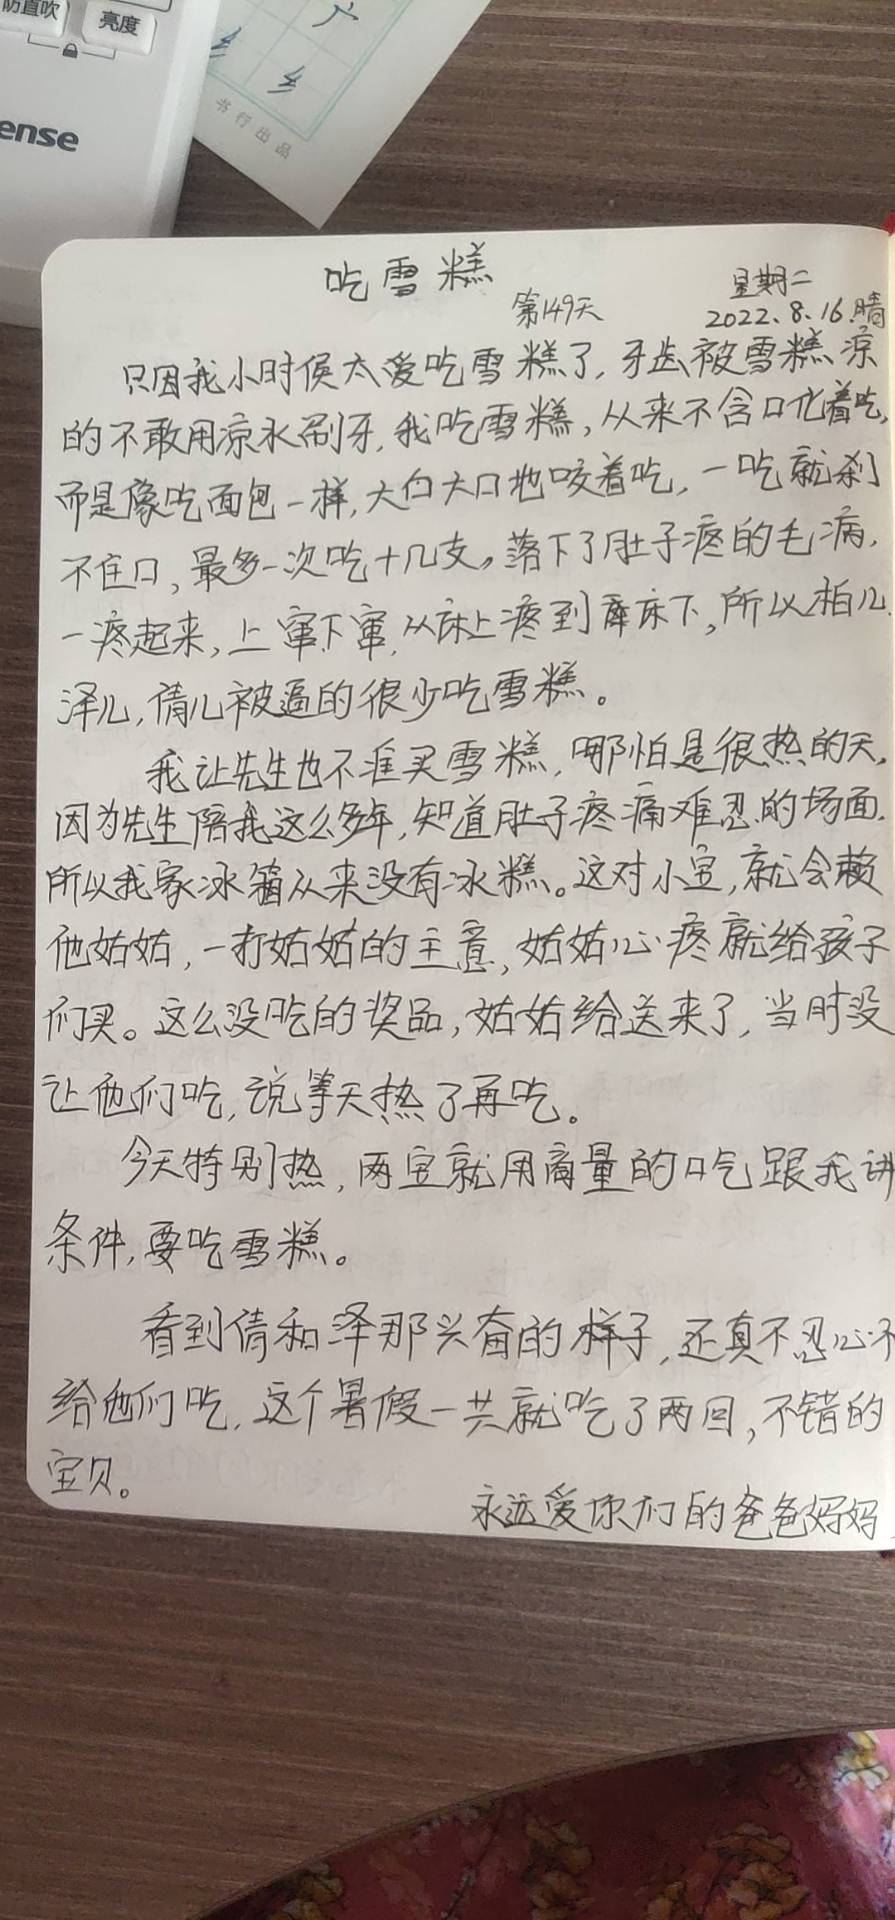 防直吹
亮度
ense
广
乡
书行出品
吃雪糕
星期二
第149天
2022.8.16.晴
只因我小时侯太爱吃雪糕了,牙齿被雪糕凉
的不敢用凉水刷牙,我吃雪糕,从来不含口化着吃,
而是像吃面包一样,大口大口地咬着吃,一吃就刹
不住口,最多一次吃十几支,落下了肚子疼的毛病,
一疼起来,上窜下窜,从床上疼到床下,所以柏儿
泽儿,倩儿被逼的很少吃雪糕。
我让先生也不准买雪糕,哪怕是很热的天,
因为先生陪我这么多年,知道肚子疼痛难忍的场面.
所以我家冰箱从来没有冰糕。这对小宝,就会赖
他姑姑,一打姑姑的主意,姑姑心疼就给孩子
们买。这么没吃的奖品,姑姑给送来了,当时没
让他们吃,说等天热了再吃。
今天特别热,两宝就用商量的口气跟我讲
条件,要吃雪糕。
看到倩和泽那兴奋的样子,还真不忍心不
给他们吃,这个暑假一共就吃了两回,不错的
宝贝。
永远爱你们的爸爸妈妈